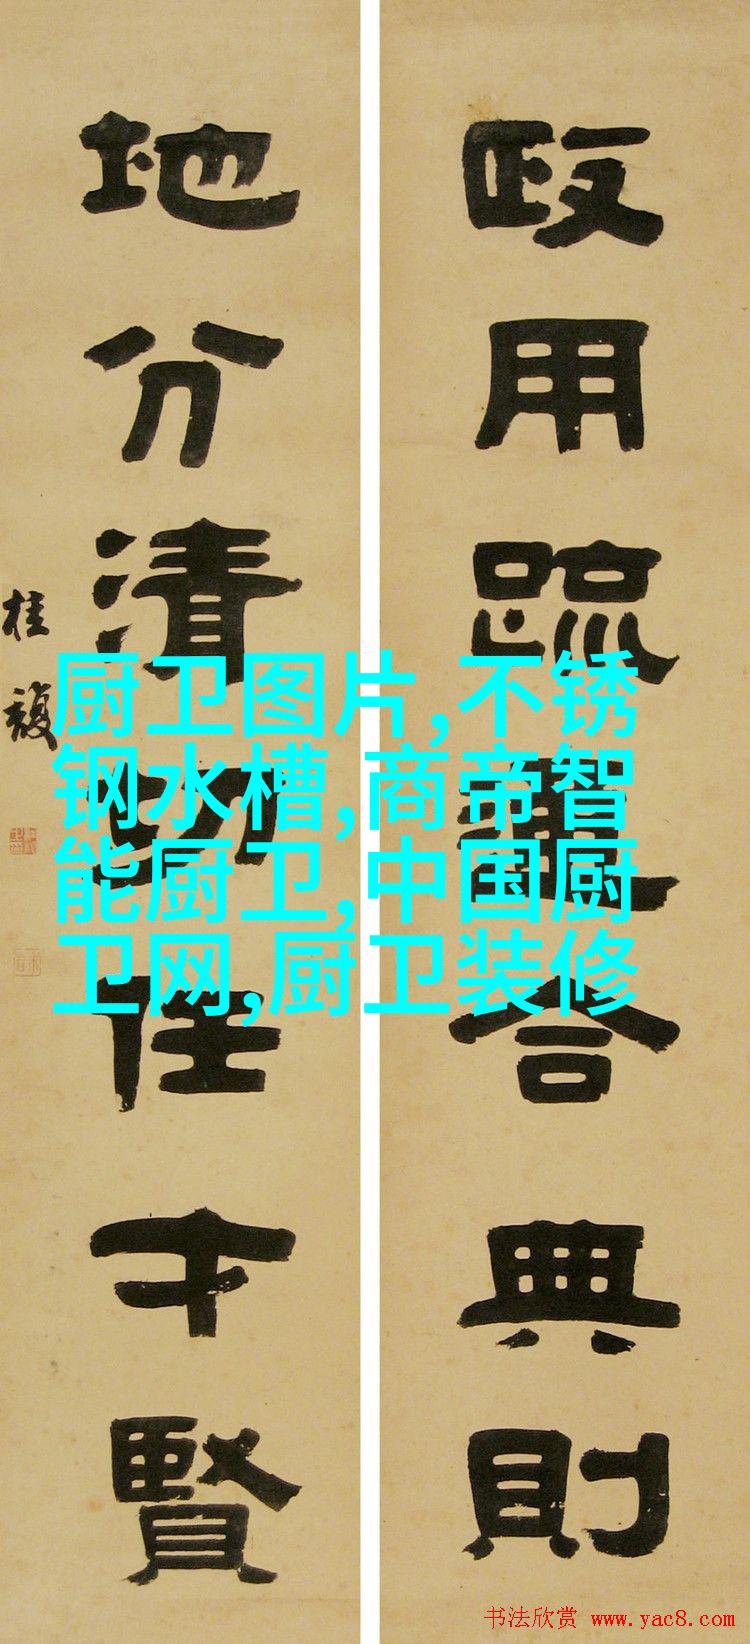 政用疏通合典則
地分清切任才賢
桂馥
厨卫图片,不锈
钢水槽,商帝智
能厨卫,中国厨
卫网,厨卫装修
书法欣赏 www.yac8.com